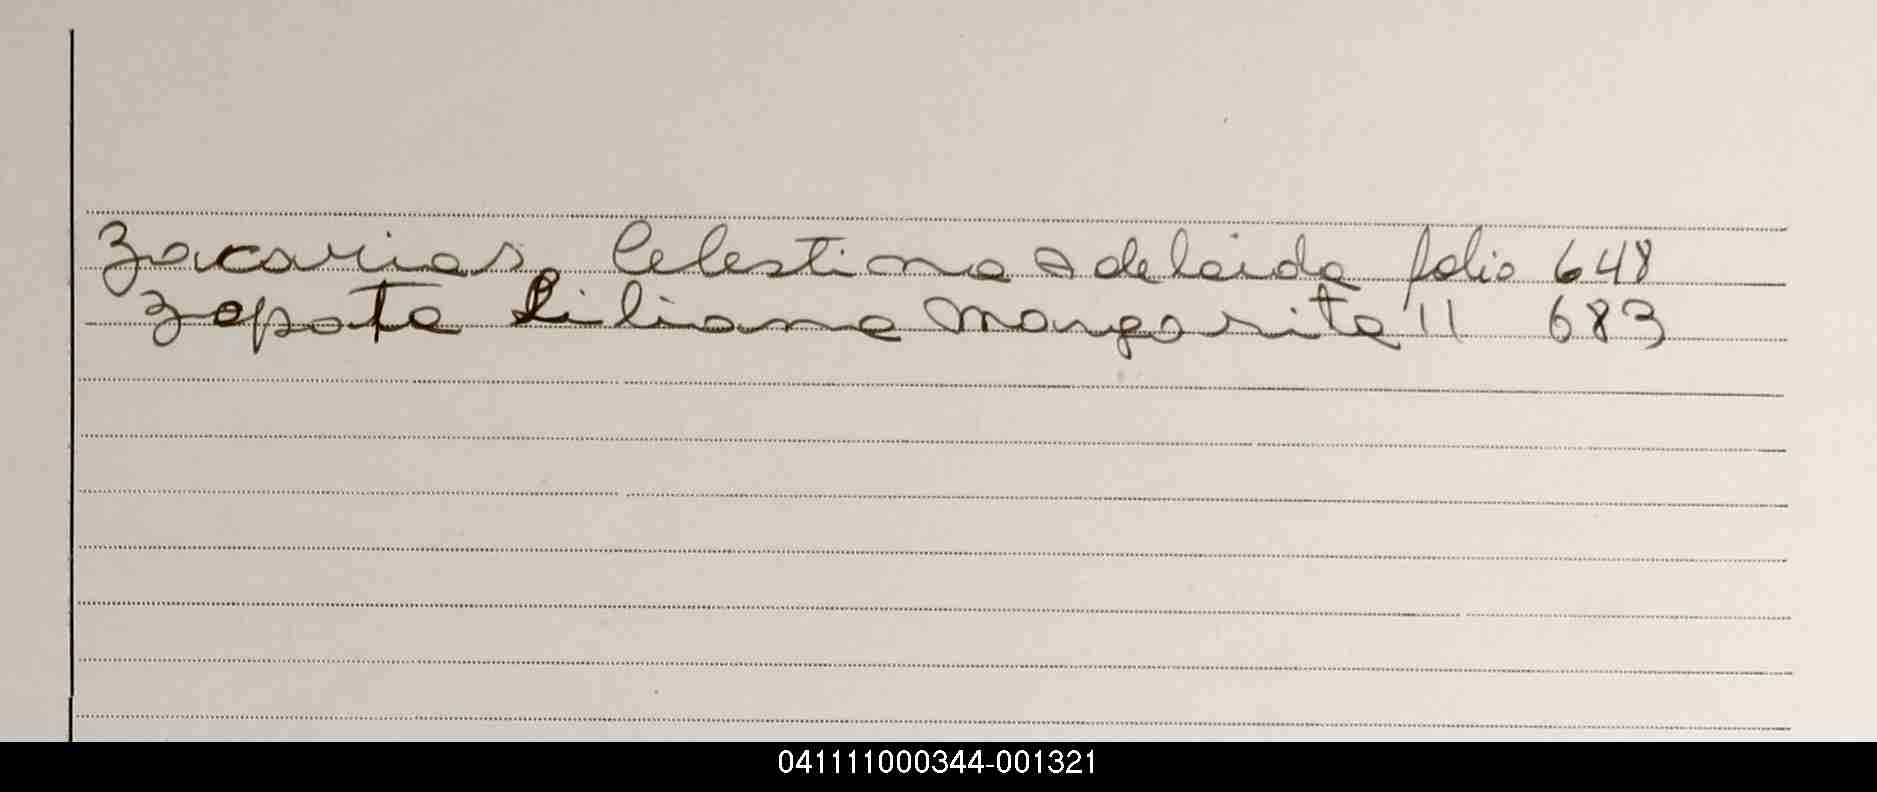 Zacarias, Celestina Adelaida folio 648
Zapata Liliana Margarita " 683
041111000344-001321